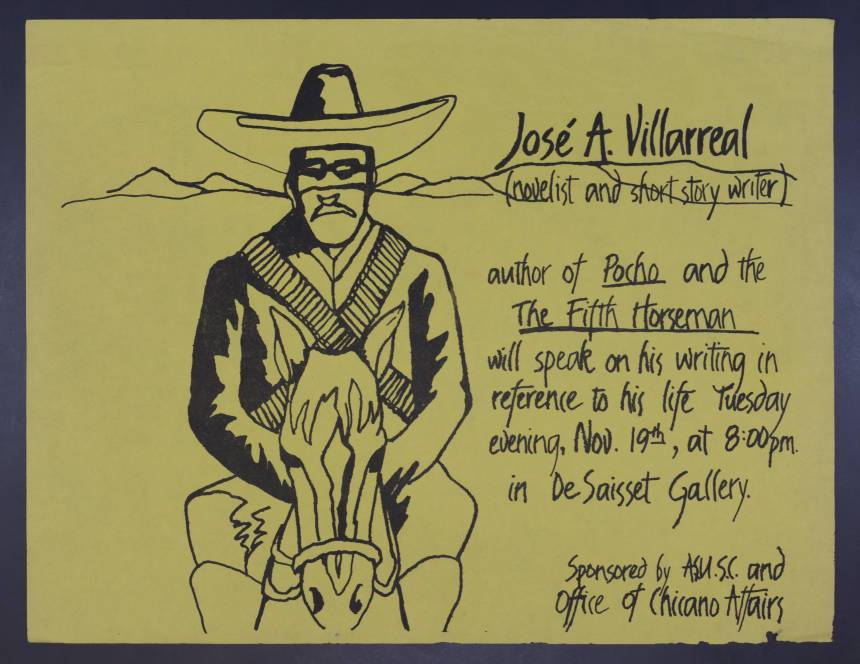 José A. Villarreal
(novelist and short story writer)
author of Pocho and the
The Fifth Horseman
will speak on his writing in
reference to his life Tuesday
evening, Nov. 19th, at 8:00pm.
in De Saisset Gallery.
Sponsored by A.S.U.S.C. and
Office of Chicano Affairs